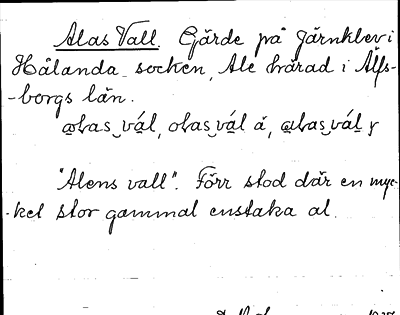 Alas Vall. Gärde på Järnklev i
Hålanda socken, Ale härad i Älfs-
-borgs län.
"Alens vall". Förr stod där en myc-
-ket stor gammal enstaka al.